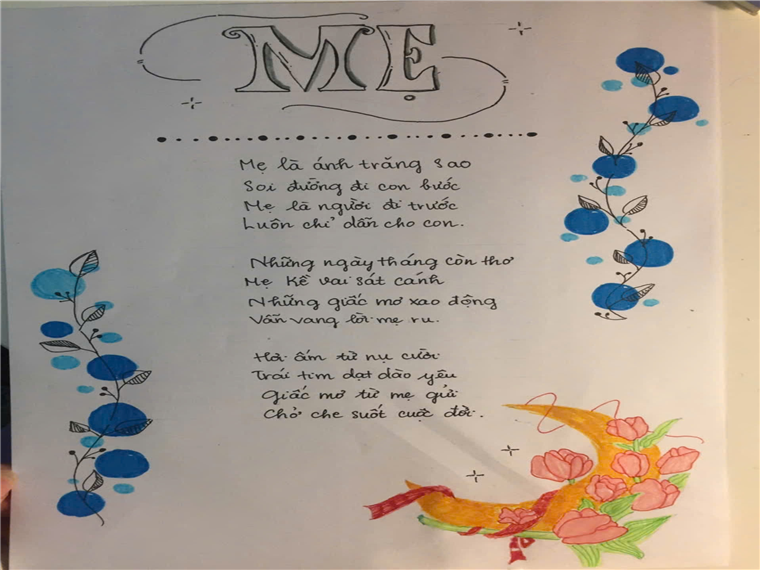 MẸ
Mẹ là ánh trăng sao
Soi đường đi con bước
Mẹ là người đi trước
Luôn chỉ dẫn cho con.
Những ngày tháng còn thơ
Mẹ kề vai sát cánh
Những giấc mơ xao động
Vẫn vang lời mẹ ru.
Hơi ấm từ nụ cười
Trái tim dạt dào yêu
Giấc mơ từ mẹ gửi
Chở che suốt cuộc đời.